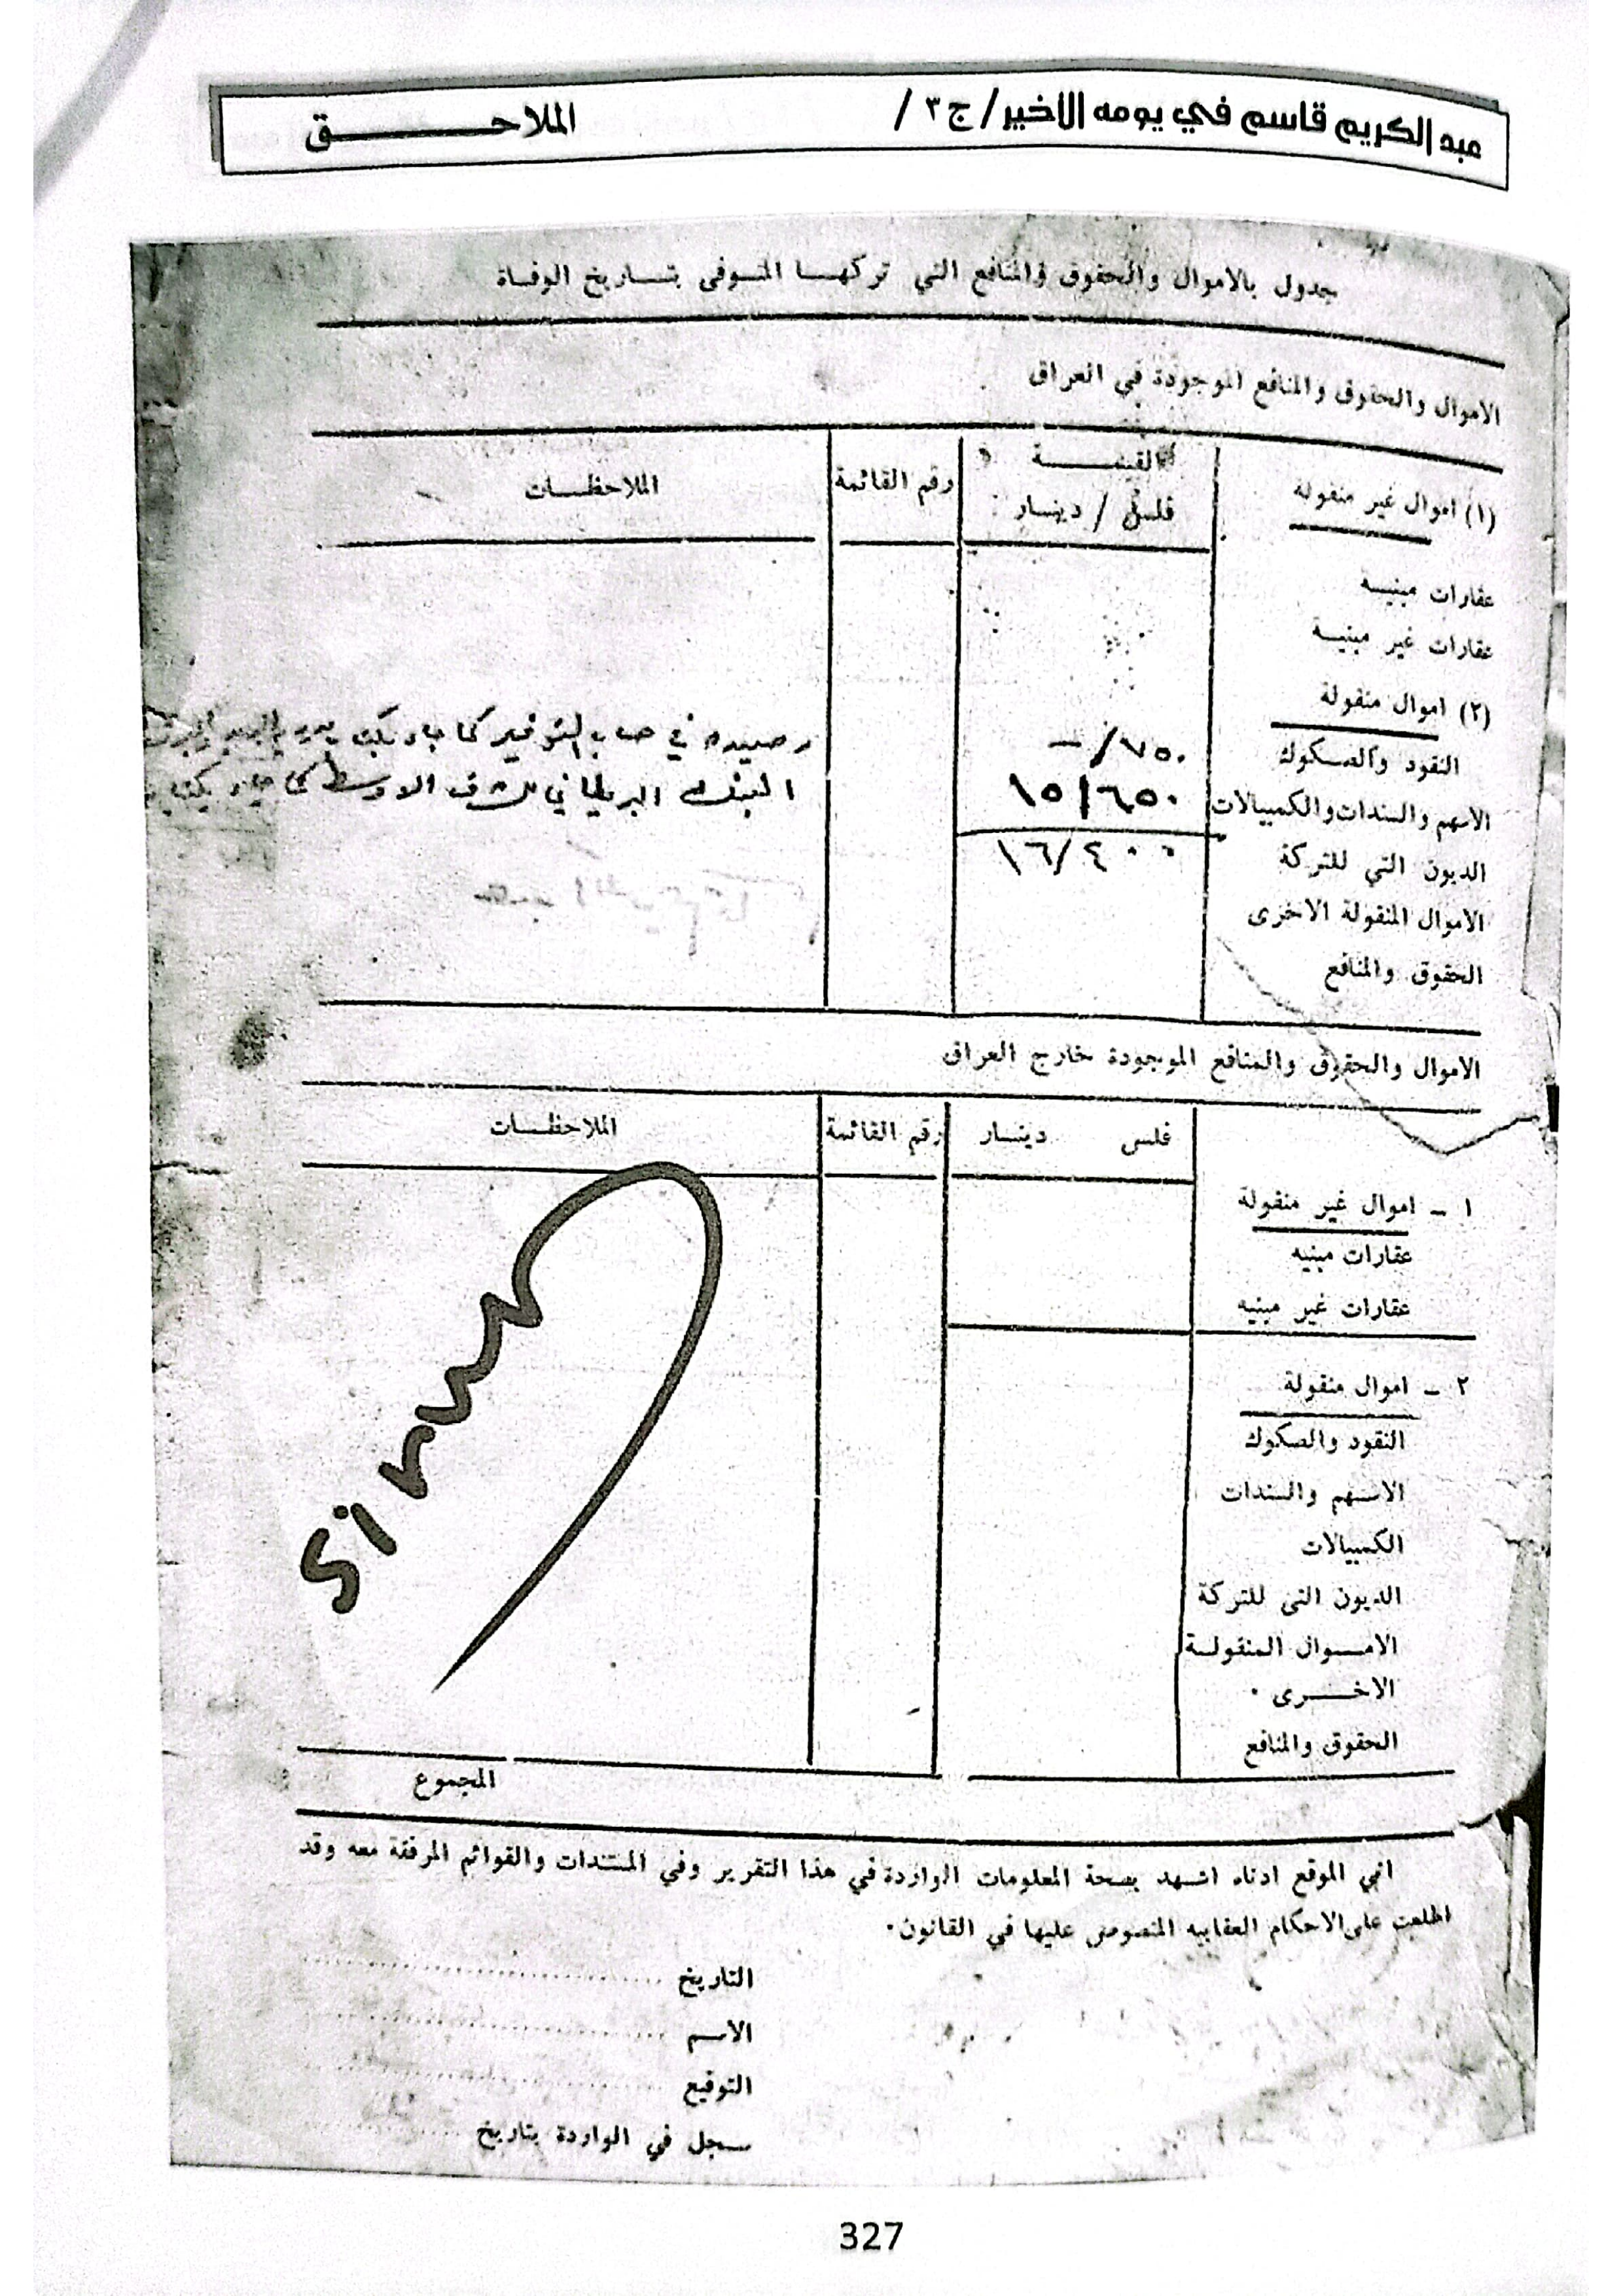 عبد الكريم قاسم في يومه الاخير / ج٣ / الملاحــــــــق
جدول بالاموال والحقوق والمنافع التي تركهــا المتـوفى بتــاريخ الوفـاة
الاموال والحقوق والمنافع الموجودة في العراق
(١) اموال غير منقوله
القيمــــــة
فلس / دينـار
رقم القائمة
الملاحظــات
عقارات مبنيـه
عقارات غير مبنيـة
(٢) اموال منقولة
النقود والصـكوك ٧٥٠/— رصيده في حساب التوفير كما جاء بكتاب
الاسهم والسندات والكمبيالات ١٥/٦٥٠ البنك البريطاني للشرق الاوسط كما جاء بكتاب
الديون التي للتركة ١٦/٤٠٠
الاموال المنقولة الاخرى
الحقوق والمنافع
الاموال والحقوق والمنافع الموجودة خارج العراق
فلس دينـار رقم القائمة الملاحظــات
١ - اموال غير منقولة
عقارات مبنيه
عقارات غير مبنيه
٢ - اموال منقولة
النقود والصكوك
الاسـهم والسندات
الكمبيالات
الديون التي للتركة
الامــوال المنقولـة
الاخــــرى .
الحقوق والمنافع
المجموع
اني الموقع ادناه اشـهد بصحة المعلومات الواردة في هذا التقرير وفي المستندات والقوائم المرفقة معه وقد
اطلعت على الاحكام العقابيه المنصوص عليها في القانون.
التاريخ ..............................
الاسـم ..............................
التوقيع ..............................
سـجل في الواردة بتاريخ
327